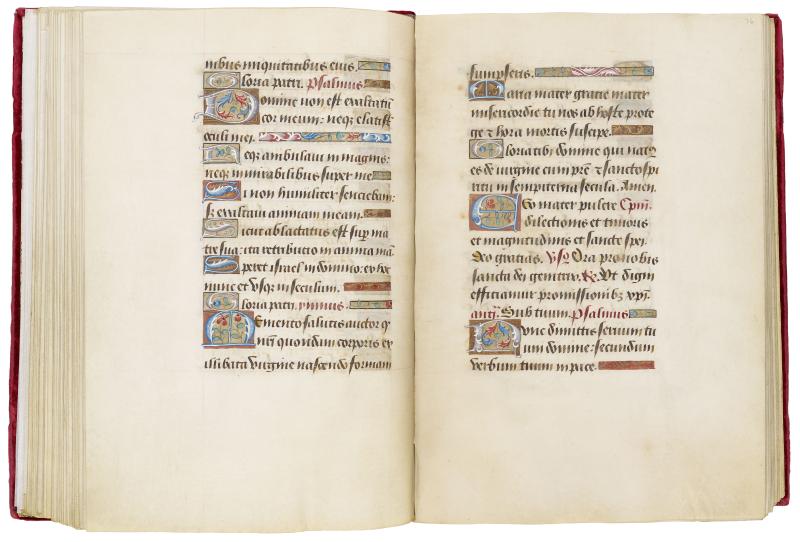 nibus iniquitatibus eius.
Gloria patri. Psalmus
Domine non est exaltatū
cor meum: neqꝫ elati sūt
oculi mei.
Neqꝫ ambulaui in magnis:
neqꝫ mirabilibus super me
Si non humiliter sentiebam:
sꝫ exaltaui animam meam.
Sicut ablactatus est suꝑ ma
tre sua: ita retributio in anima mā
Speret israel in domino: ex hoc
nunc et vsqꝫ in seculum.
Gloria patri. ymnus.
Memento salutis auctor qͥ
nr̄i quondam corporis ex
illibata virgine nascendo formam
sumpseris.
Maria mater gratie mater
misericordie tu nos ab hoste prote
ge ⁊ hora mortis suscipe.
Gloria tibi domine qui natꝰ
es de virgine cum pr̄e ⁊ sancto spi
ritu in sempiterna secula. Amen.
Ego mater pulcre Cpīm.
dilectionis et timoris
et magnitudinis et sancte spei.
Deo gratias. Vsꝰ. Ora pro nobis
sancta dei genitrix. ℟. Vt digni
efficiamur promissionibꝫ xp̄i.
antꝭ. Sub tuum. Psalmus
Nunc dimittis seruum tu
um domine: secundum
verbum tuum in pace.
76